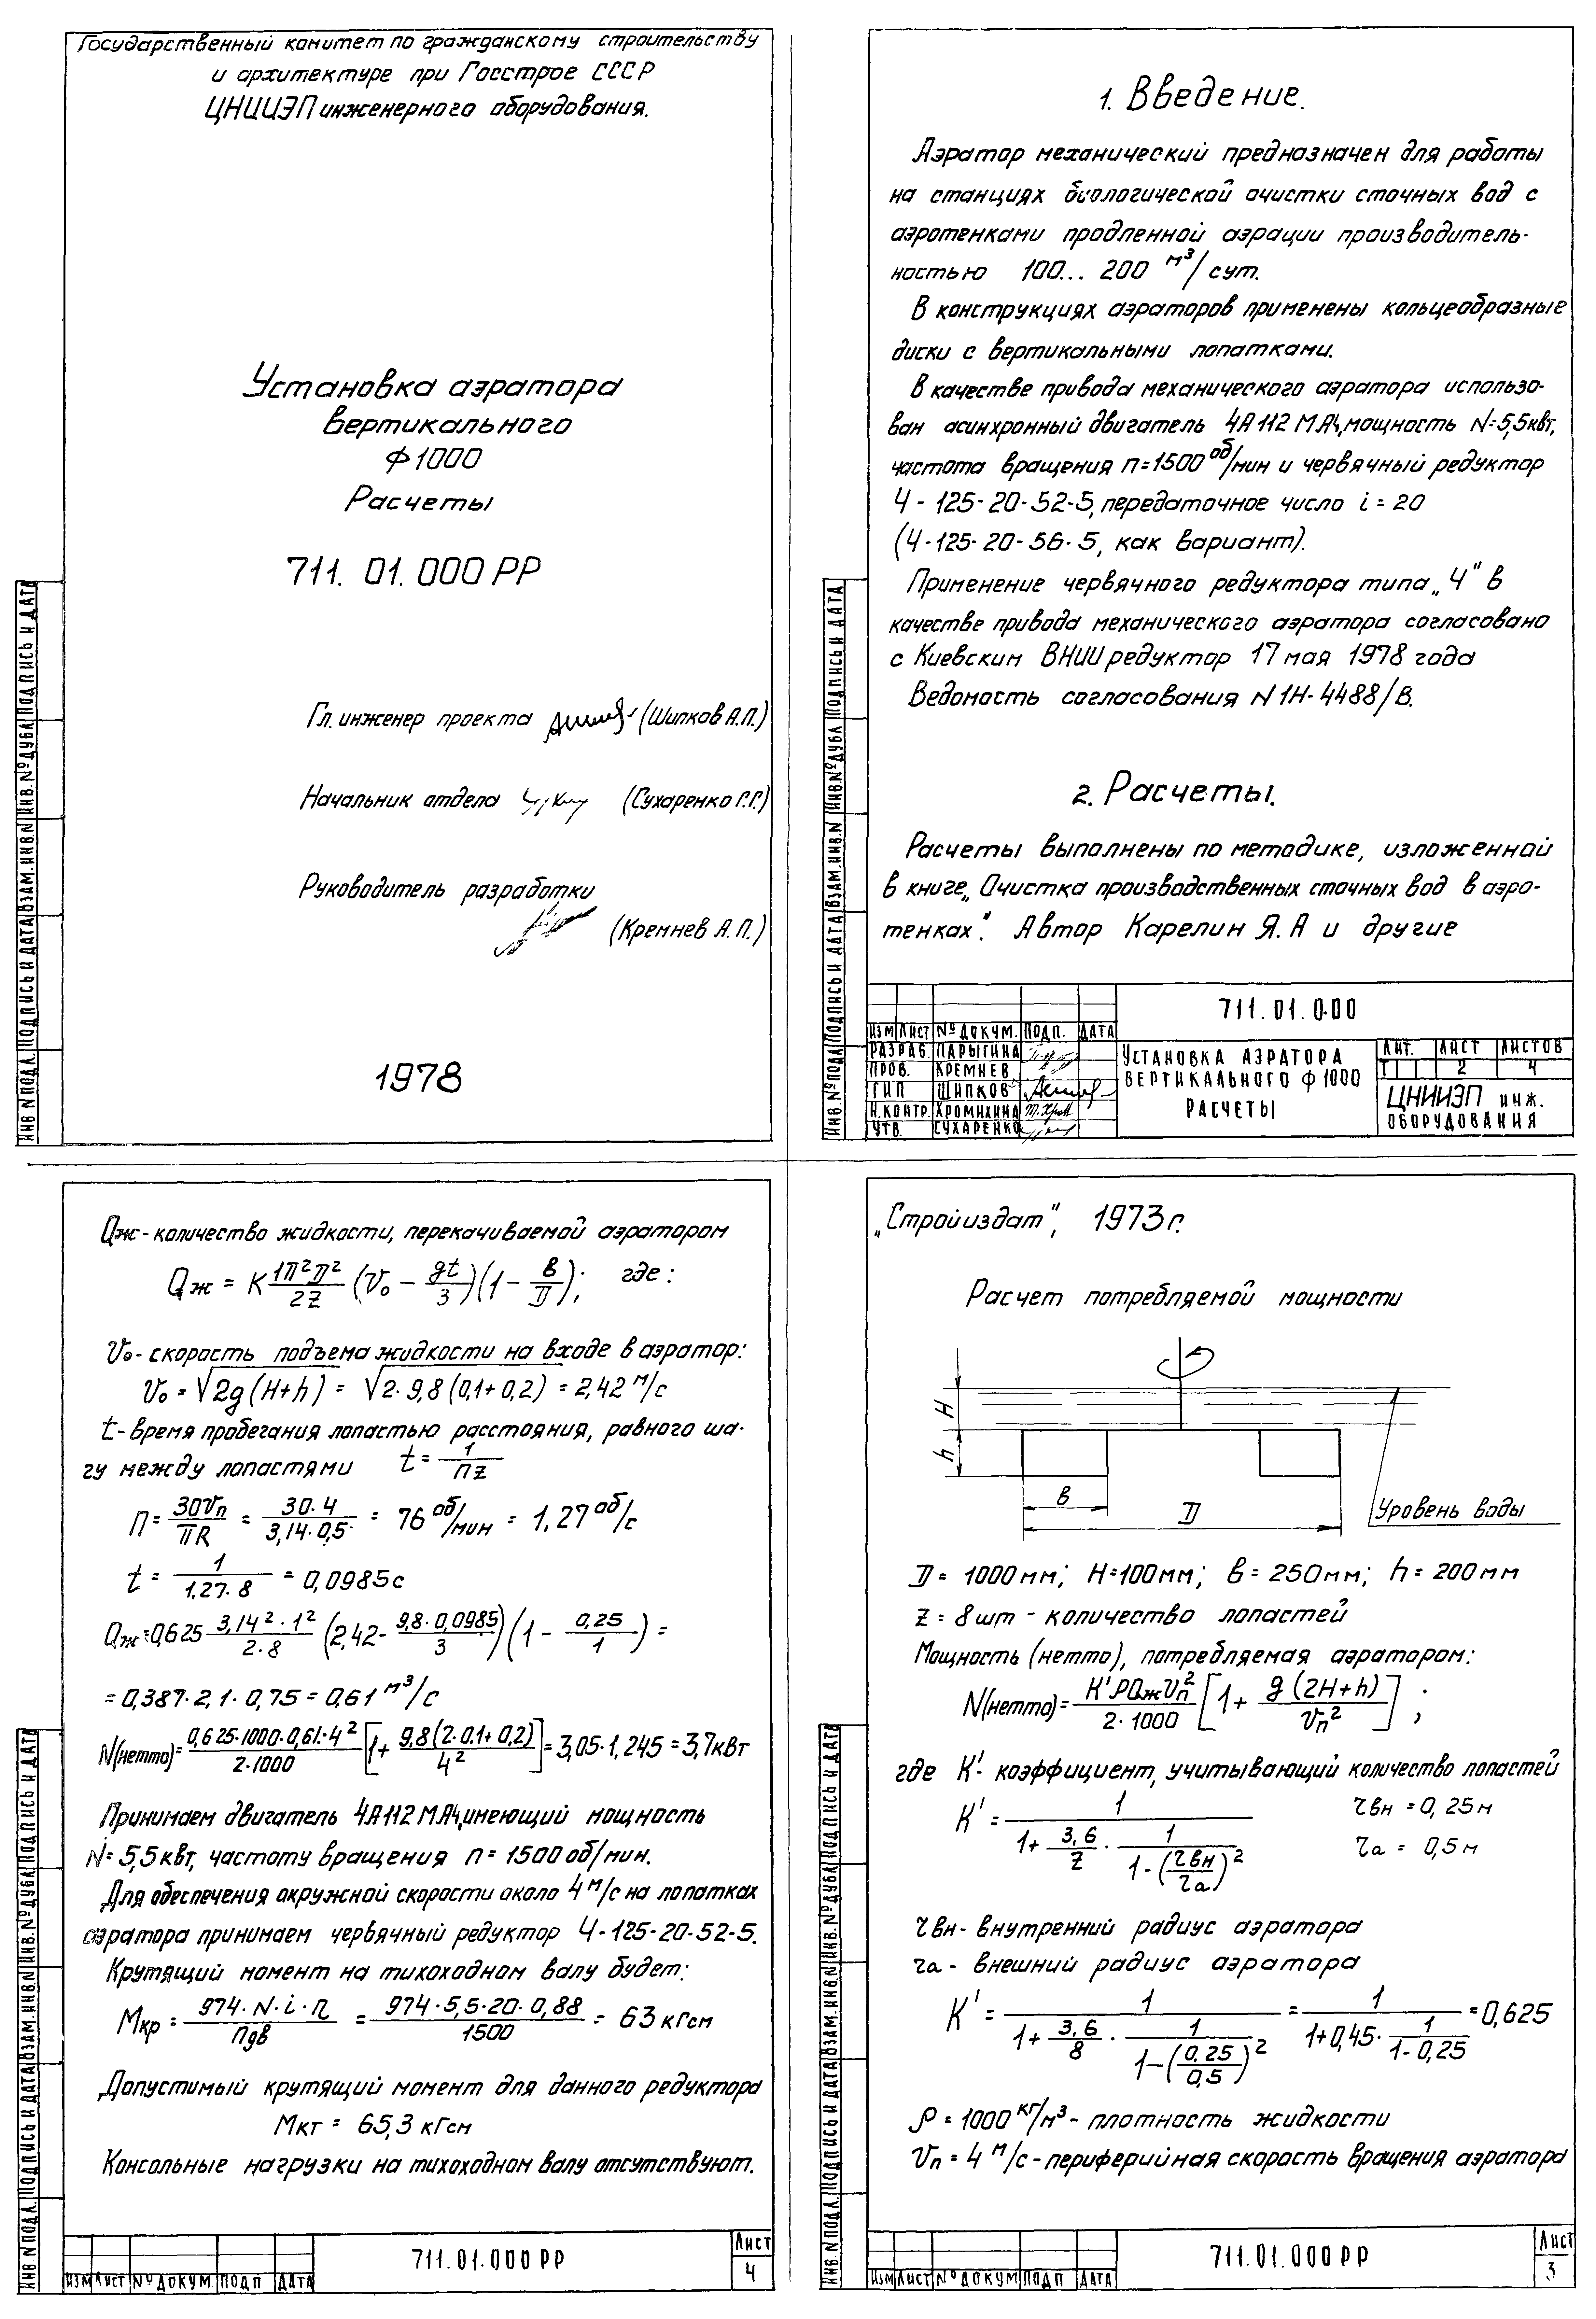 Государственный комитет по гражданскому строительству
и архитектуре при Госстрое СССР
ЦНИИЭП инженерного оборудования.
Установка аэратора
вертикального
Ф1000
Расчеты
711.01.000 РР
Гл. инженер проекта (Шипков А.П.)
Начальник отдела (Сухаренко Г.Г.)
Руководитель разработки
(Кремнев А.П.)
1978
ИНВ.N ПОДЛ. ПОДПИСЬ И ДАТА ВЗАМ.ИНВ.N ИНВ.№ДУБЛ ПОДПИСЬ И ДАТА
1. Введение.
Аэратор механический предназначен для работы
на станциях биологической очистки сточных вод с
аэротенками продленной аэрации производитель-
ностью 100... 200 м³/сут.
В конструкциях аэраторов применены кольцеобразные
диски с вертикальными лопатками.
В качестве привода механического аэратора использо-
ван асинхронный двигатель 4А112МА4, мощность N=5,5квт,
частота вращения n=1500 об/мин и червячный редуктор
Ч-125-20-52-5, передаточное число i = 20
(Ч-125-20-56-5, как вариант).
Применение червячного редуктора типа „Ч" в
качестве привода механического аэратора согласовано
с Киевским ВНИИредуктор 17 мая 1978 года
Ведомость согласования N 1Н-4488/В.
2. Расчеты.
Расчеты выполнены по методике, изложенной
в книге „Очистка производственных сточных вод в аэро-
тенках". Автор Карелин Я.А и другие
711.01.000
ИЗМ ЛИСТ №ДОКУМ. ПОДП. ДАТА
РАЗРАБ. ПАРЫГИНА
ПРОВ. КРЕМНЕВ
ГИП ШИПКОВ
Н.КОНТР. ХРОМИХИНА
УТВ. СУХАРЕНКО
УСТАНОВКА АЭРАТОРА
ВЕРТИКАЛЬНОГО Ф1000
РАСЧЕТЫ
ЛИТ. ЛИСТ ЛИСТОВ
Т 2 4
ЦНИИЭП ИНЖ.
ОБОРУДОВАНИЯ
ИНВ.№ПОДЛ ПОДПИСЬ И ДАТА ВЗАМ.ИНВ.N ИНВ.№ДУБЛ ПОДПИСЬ И ДАТА
Qж - количество жидкости, перекачиваемой аэратором
Qж = K 1π²D²/2z (Vo - gt/3)(1 - в/D); где:
Vo - скорость подъема жидкости на входе в аэратор:
Vo = √2g(H+h) = √2·9,8(0,1+0,2) = 2,42 м/с
t - время пробегания лопастью расстояния, равного ша-
гу между лопастями t = 1/nz
n = 30Vп/πR = 30·4/3,14·0,5 = 76 об/мин = 1,27 об/с
t = 1/1,27·8 = 0,0985с
Qж = 0,625 3,14²·1²/2·8 (2,42 - 9,8·0,0985/3)(1 - 0,25/1) =
= 0,387·2,1·0,75 = 0,61 м³/с
N(нетто) = 0,625·1000·0,61·4²/2·1000 [1 + 9,8(2·0.1+0,2)/4²] = 3,05·1,245 = 3,7квт
Принимаем двигатель 4А112МА4, имеющий мощность
N = 5,5квт, частоту вращения n = 1500 об/мин.
Для обеспечения окружной скорости около 4 м/с на лопатках
аэратора принимаем червячный редуктор Ч-125-20-52-5.
Крутящий момент на тихоходном валу будет:
Мкр = 974·N·i·η/nдв = 974·5,5·20·0,88/1500 = 63 кгсм
Допустимый крутящий момент для данного редуктора
Мкт = 65,3 кгсм
Консольные нагрузки на тихоходном валу отсутствуют.
711.01.000 РР
ИЗМ ЛИСТ №ДОКУМ ПОДП ДАТА
Лист
4
ИНВ.N ПОДЛ. ПОДПИСЬ И ДАТА ВЗАМ.ИНВ.N ИНВ.№ДУБЛ ПОДПИСЬ И ДАТА
„Стройиздат", 1973г.
Расчет потребляемой мощности
H
h
в
D
Уровень воды
D = 1000мм; H=100мм; в = 250мм; h = 200мм
z = 8шт - количество лопастей
Мощность (нетто), потребляемая аэратором:
N(нетто) = K'ρQжVп²/2·1000 [1 + g(2H+h)/Vп²];
где K' - коэффициент, учитывающий количество лопастей
K' = 1/(1 + 3,6/z · 1/(1-(rвн/rа)²)) rвн = 0,25м
rа = 0,5м
rвн - внутренний радиус аэратора
rа - внешний радиус аэратора
K' = 1/(1 + 3,6/8 · 1/(1-(0,25/0,5)²)) = 1/(1+0,45· 1/(1-0,25)) = 0,625
ρ = 1000 кг/м³ - плотность жидкости
Vп = 4 м/с - периферийная скорость вращения аэратора
711.01.000 РР
ИЗМ ЛИСТ №ДОКУМ ПОДП ДАТА
Лист
3
ИНВ.N ПОДЛ. ПОДПИСЬ И ДАТА ВЗАМ.ИНВ.N ИНВ.№ДУБЛ ПОДПИСЬ И ДАТА